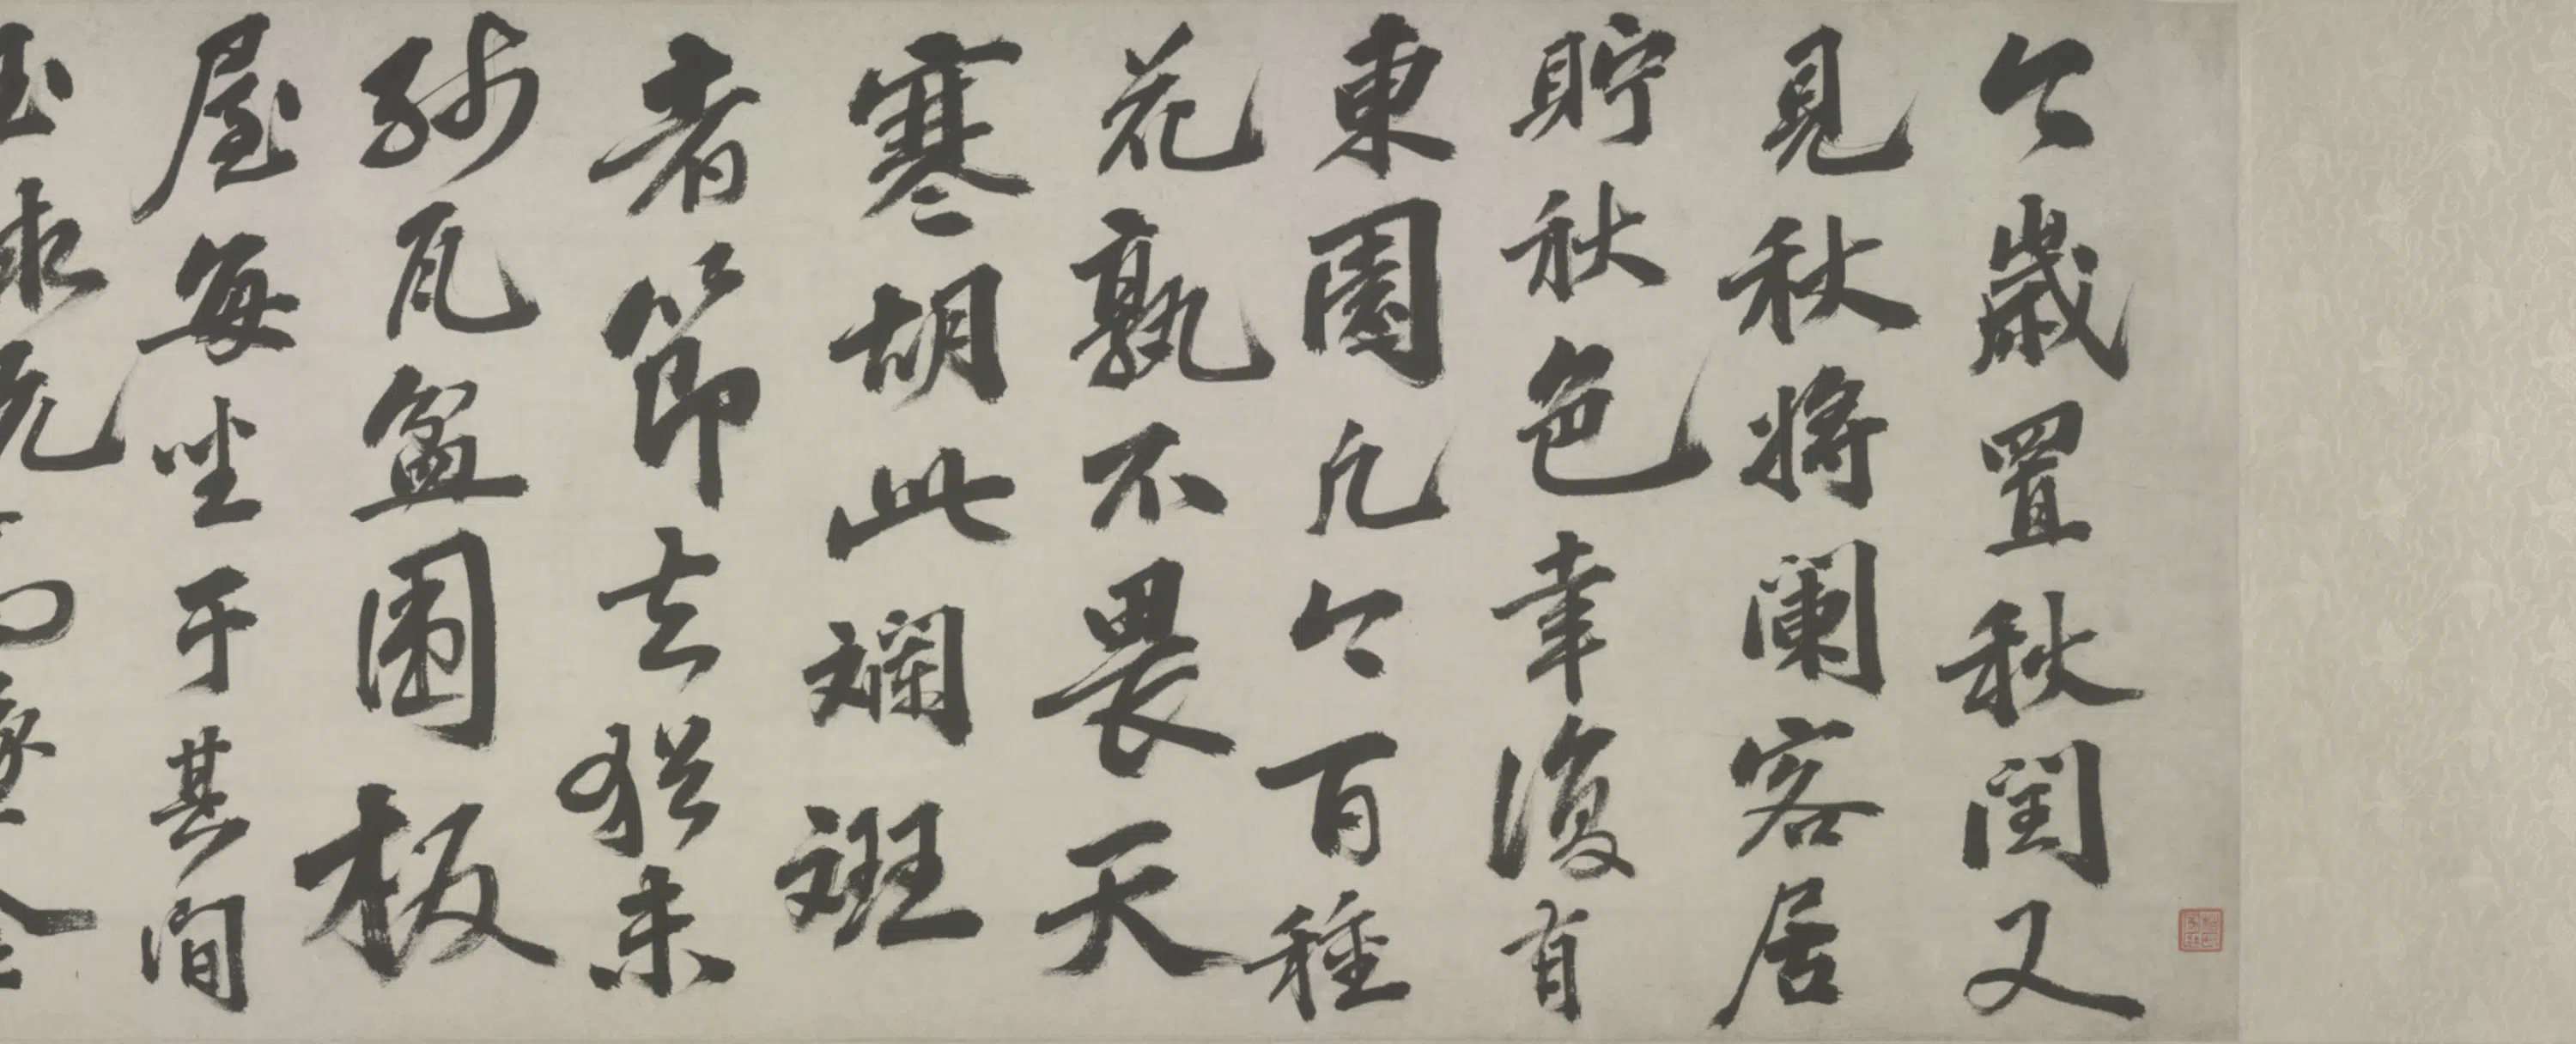 今歲置秋閏又
見秋將闌客居
貯秋色幸復有
東園凡今百種
花孰不畏天
寒胡此斕斑
者節去猶未
殘瓦盆圍板
屋每坐于其間